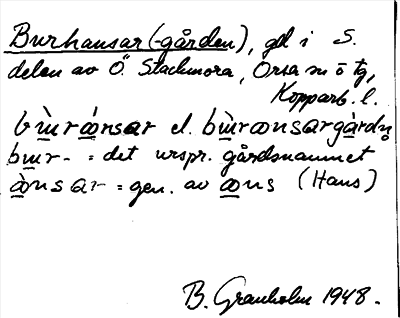 Burhansar (-gården), gd i S.
delen av Ö. Stackmora, Orsa sn o tg,
Kopparb. l.
bɯ̀rάnsar el. bɯ̀ransargὰrdn̥
bɯr- = det urspr. gårdsnamnet
ὰnsar = gen. av ans (Hans)
B. Granholm 1948.